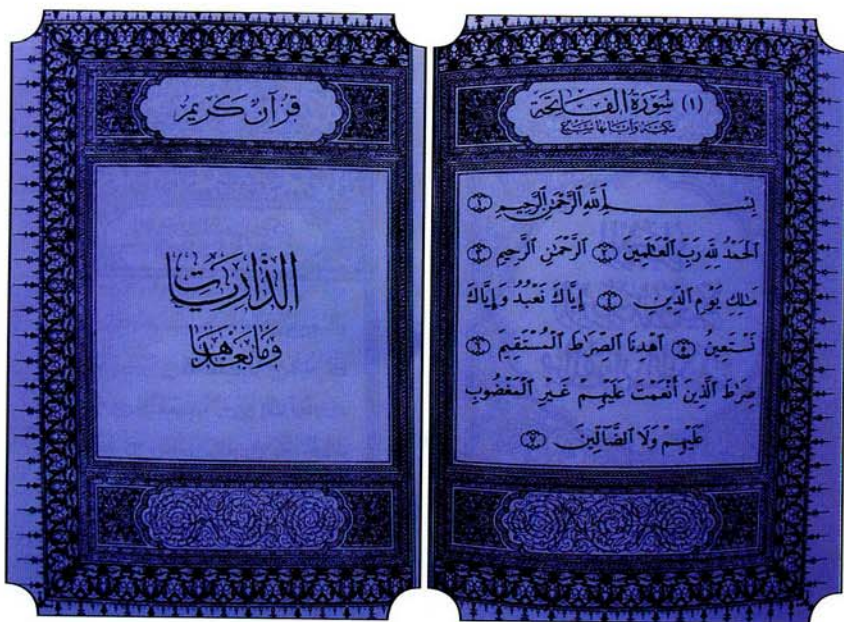 (١) سُورَةُ الفَاتِحَةِ
مكيّة وآياتها سَبْع
بِسْمِ ٱللَّهِ ٱلرَّحْمَٰنِ ٱلرَّحِيمِ ١
ٱلْحَمْدُ لِلَّهِ رَبِّ ٱلْعَٰلَمِينَ ٢ ٱلرَّحْمَٰنِ ٱلرَّحِيمِ ٣
مَٰلِكِ يَوْمِ ٱلدِّينِ ٤ إِيَّاكَ نَعْبُدُ وَإِيَّاكَ
نَسْتَعِينُ ٥ ٱهْدِنَا ٱلصِّرَٰطَ ٱلْمُسْتَقِيمَ ٦
صِرَٰطَ ٱلَّذِينَ أَنْعَمْتَ عَلَيْهِمْ غَيْرِ ٱلْمَغْضُوبِ
عَلَيْهِمْ وَلَا ٱلضَّآلِّينَ ٧
قرآن كريم
الذاريات
وما بعدها